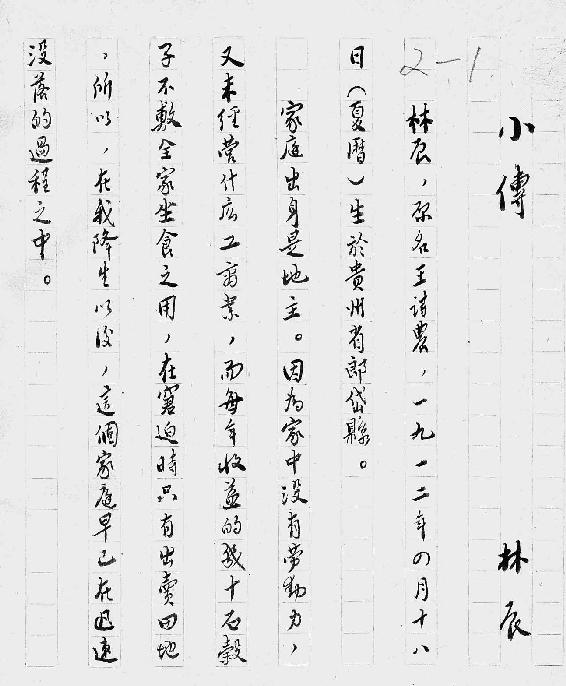 小傳
林辰
2-1
林辰，原名王詩農，一九一二年四月十八
日（夏曆）生於貴州省郎岱縣。
家庭出身是地主。因為家中沒有勞動力，
又未經營什么工商業，而每年收益的幾十石穀
子不敷全家坐食之用，在窘迫時只有出賣田地
，所以，在我降生以後，這個家庭早已在迅速
沒落的過程之中。